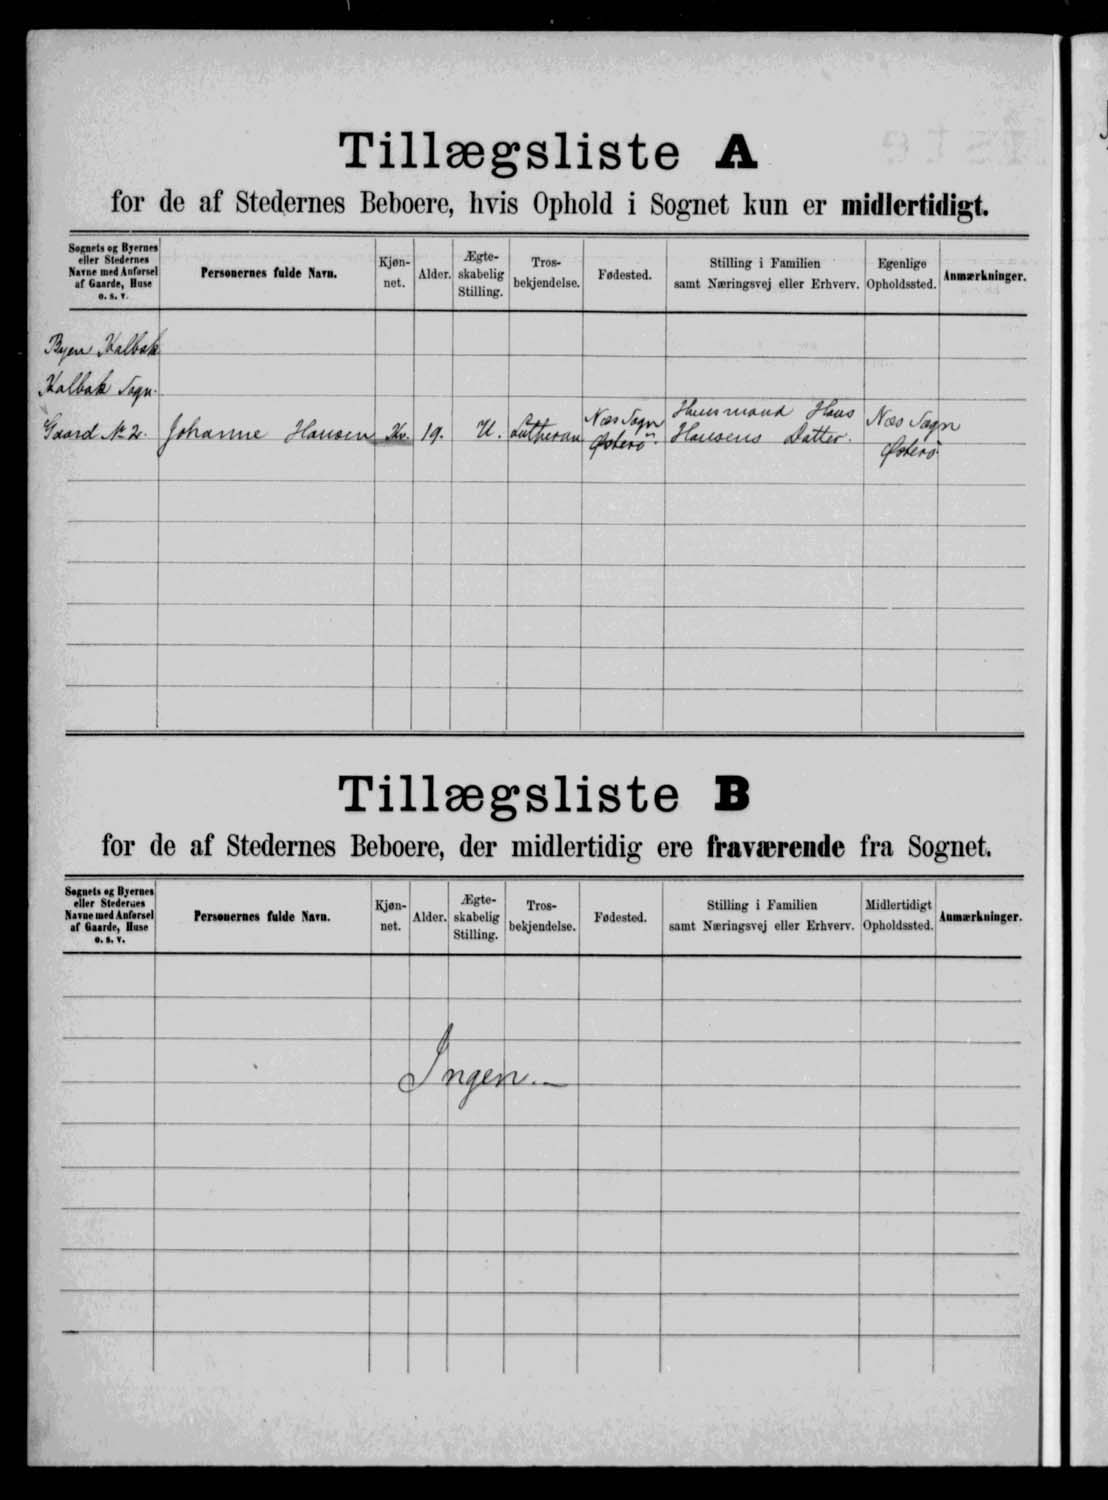 Tillægsliste A
for de af Stedernes Beboere, hvis Ophold i Sognet kun er midlertidigt.
Sognets og Byernes eller Stedernes Navne med Anførsel af Gaarde, Huse o. s. v.
Personernes fulde Navn.
Kjønnet.
Alder.
Ægteskabelig Stilling.
Trosbekjendelse.
Fødested.
Stilling i Familien samt Næringsvej eller Erhverv.
Egenlige Opholdssted.
Anmærkninger.
Byen Kalbak
Kalbak Sogn.
Gaard No 2. Johanne Hansen Kv. 19. U. Lutheran Næs Sogn Østerö. Huusmand Hans Hansens Datter. Næs Sogn Østerö
Tillægsliste B
for de af Stedernes Beboere, der midlertidig ere fraværende fra Sognet.
Sognets og Byernes eller Stedernes Navne med Anførsel af Gaarde, Huse o. s. v.
Personernes fulde Navn.
Kjønnet.
Alder.
Ægteskabelig Stilling.
Trosbekjendelse.
Fødested.
Stilling i Familien samt Næringsvej eller Erhverv.
Midlertidigt Opholdssted.
Anmærkninger.
Ingen.—